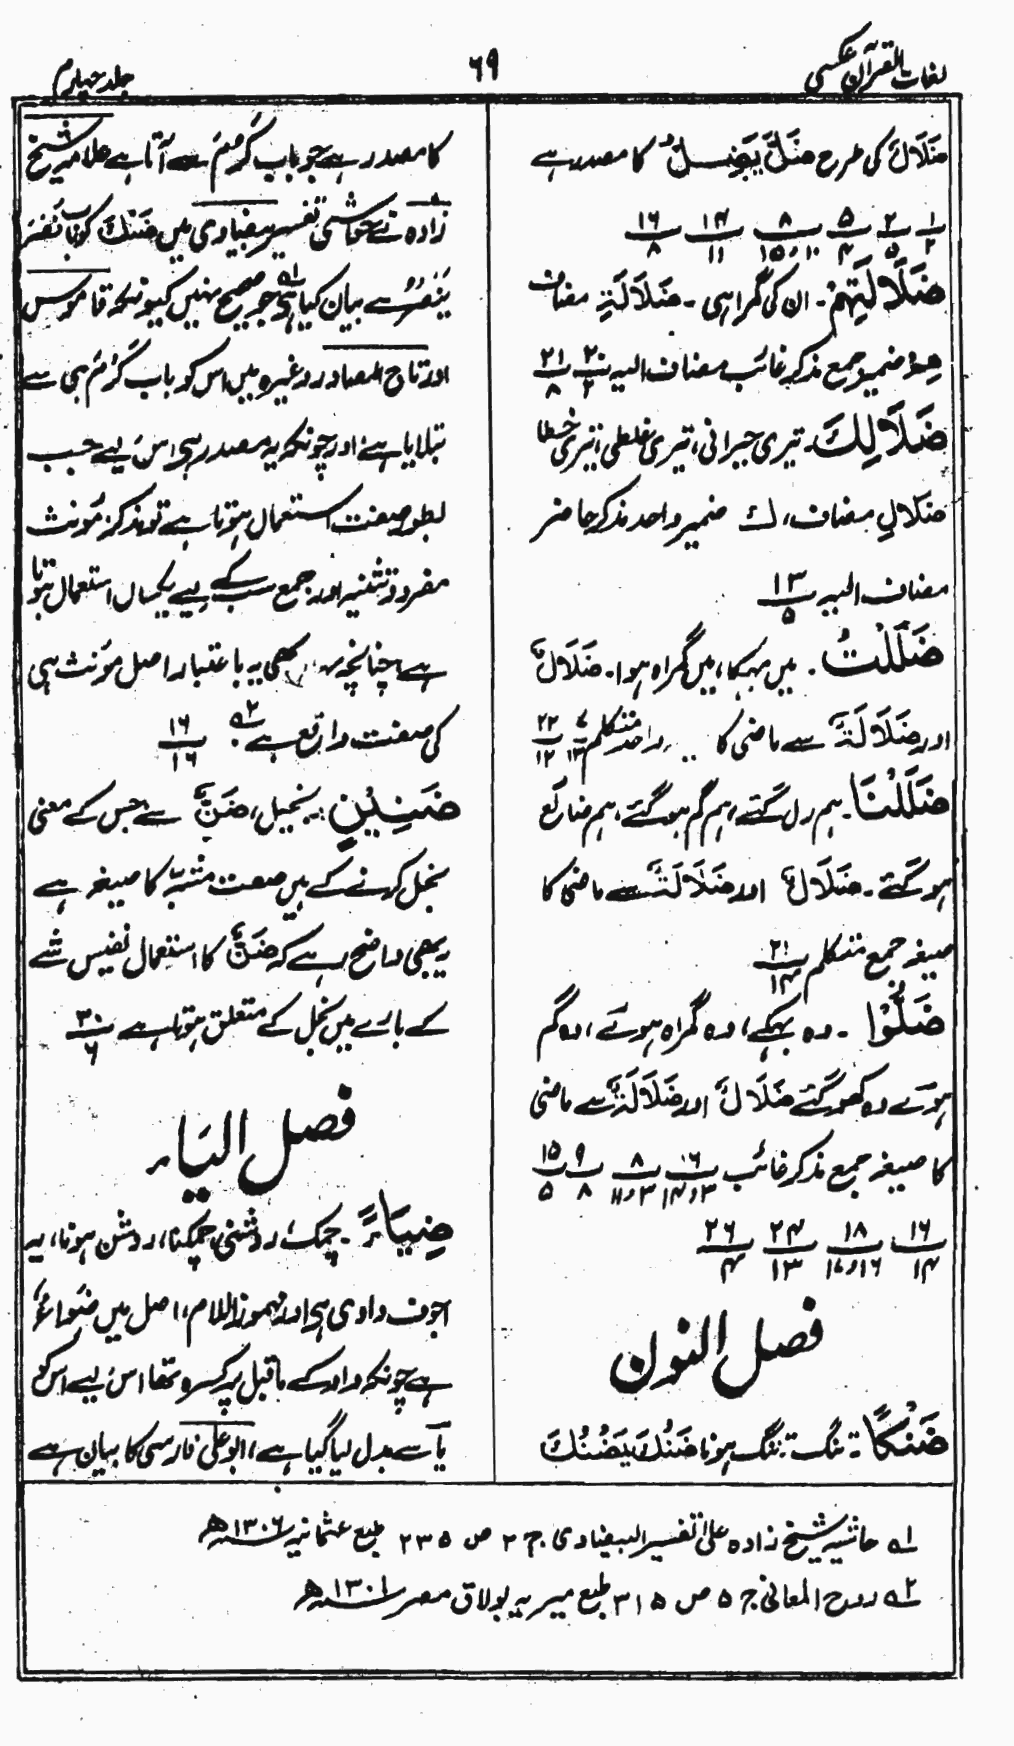 لغات القرآن عکسی
۶۹
جلد چہارم
ضَلَالٌ کی طرح ضَلَّ یَضِلُّ کا مصدر ہے
۱/۲ ۲/۵ ۵/۴ ۸/۱۰و۱۵ ۱۴/۱۱ ۱۶/۸
ضَلَالَتِهِمْ۔ ان کی گمراہی۔ ضَلَالَةِ مضاف
هِمْ ضمیر جمع مذکر غائب مضاف الیہ ۲۰/۲ ۲۱/۸
ضَلَالِكَ۔ تیری حیرانی، تیری غلطی، تیری خطا
ضَلَالِ مضاف، ك ضمیر واحد مذکر حاضر
مضاف الیہ ۱۳/۵
ضَلَلْتُ۔ میں بہکا، میں گمراہ ہوا۔ ضَلَالٌ
اور ضَلَالَةٌ سے ماضی کا واحد متکلم ۷/۱۳ ۲۲/۱۲
ضَلَلْنَا۔ ہم رل گئے، ہم گم ہو گئے، ہم ضائع
ہو گئے۔ ضَلَالٌ اور ضَلَالَةٌ سے ماضی کا
صیغہ جمع متکلم ۲۱/۱۴
ضَلُّوْا۔ وہ بہکے، وہ گمراہ ہوئے، وہ گم
ہوئے وہ کھو گئے ضَلَالٌ اور ضَلَالَةٌ سے ماضی
کا صیغہ جمع مذکر غائب ۶/۳و۱۴ ۸/۳و۱۱ ۹/۸ ۱۵/۵
۱۶/۱۴ ۱۸/۱۶و۱۷ ۲۴/۱۳ ۲۶/۴
فصل النون
ضَنْكًا۔ تنگ، تنگ ہونا ضَنُكَ یَضْنُكُ
کا مصدر ہے جو باب کَرُمَ سے آتا ہے علامہ شیخ
زادہ نے حواشی تفسیر بیضاوی میں ضَنْكٌ کو باب نَصَرَ
یَنْصُرُ سے بیان کیا ہے<sup>۱</sup> جو صحیح نہیں کیونکہ قاموس
اور تاج المصادر وغیرہ میں اس کو باب کَرُمَ ہی سے
بتلایا ہے، اور چونکہ یہ مصدر ہے اس لیے جب
بطور صفت استعمال ہوتا ہے تو مذکر، مؤنث
مفرد و تثنیہ اور جمع سب کے لیے یکساں استعمال ہوتا
ہے، چنانچہ کبھی یہ با عتبار اصل مؤنث ہی
کی صفت واقع ہے<sup>۲</sup>۔ ۱۶/۱۶
ضَنِیْنٍ: بخیل، ضَنٌّ سے جس کے معنی
بخل کرنے کے ہیں صفت مشبہ کا صیغہ ہے
یہ بھی واضح رہے کہ ضَنٌّ کا استعمال نفیس شے
کے بارے میں بخل کے متعلق ہوتا ہے ۳۰/۶
فصل الیاء
ضِیَاءً۔ چمک، روشنی، چمکنا، روشن ہونا، یہ
اجوف واوی ہے اور مہموز اللام، اصل میں ضِوَاءٌ
ہے چونکہ واو کے ماقبل پر کسرہ تھا اس لیے اس کو
یا سے بدل لیا گیا ہے، ابو علی فارسی کا بیان ہے
۱؎ حاشیہ شیخ زادہ علی تفسیر البیضاوی ج ۲ ص ۲۳۵ طبع عثمانیہ ۱۳۰۶ھ
۲؎ روح المعانی ج ۵ ص ۳۱۵ طبع میریہ بولاق مصر ۱۳۰۱ھ